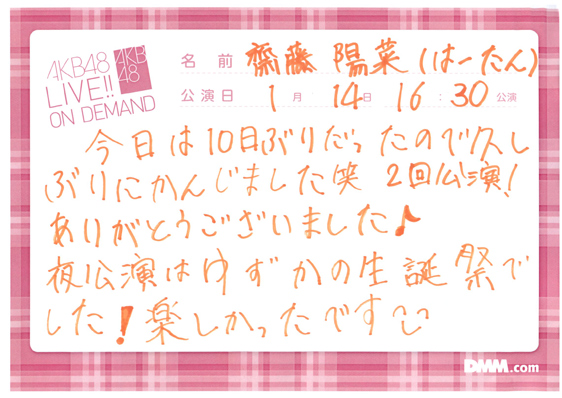 AKB48
LIVE!!
ON DEMAND
AKB
48
名前 齋藤 陽菜(はーたん)
公演日 1月 14日 16:30公演
今日は10日ぶりだったので久し
ぶりにかんじました笑 2回公演!
ありがとうございました♪
夜公演はゆずかの生誕祭で
した!楽しかったです
DMM.com